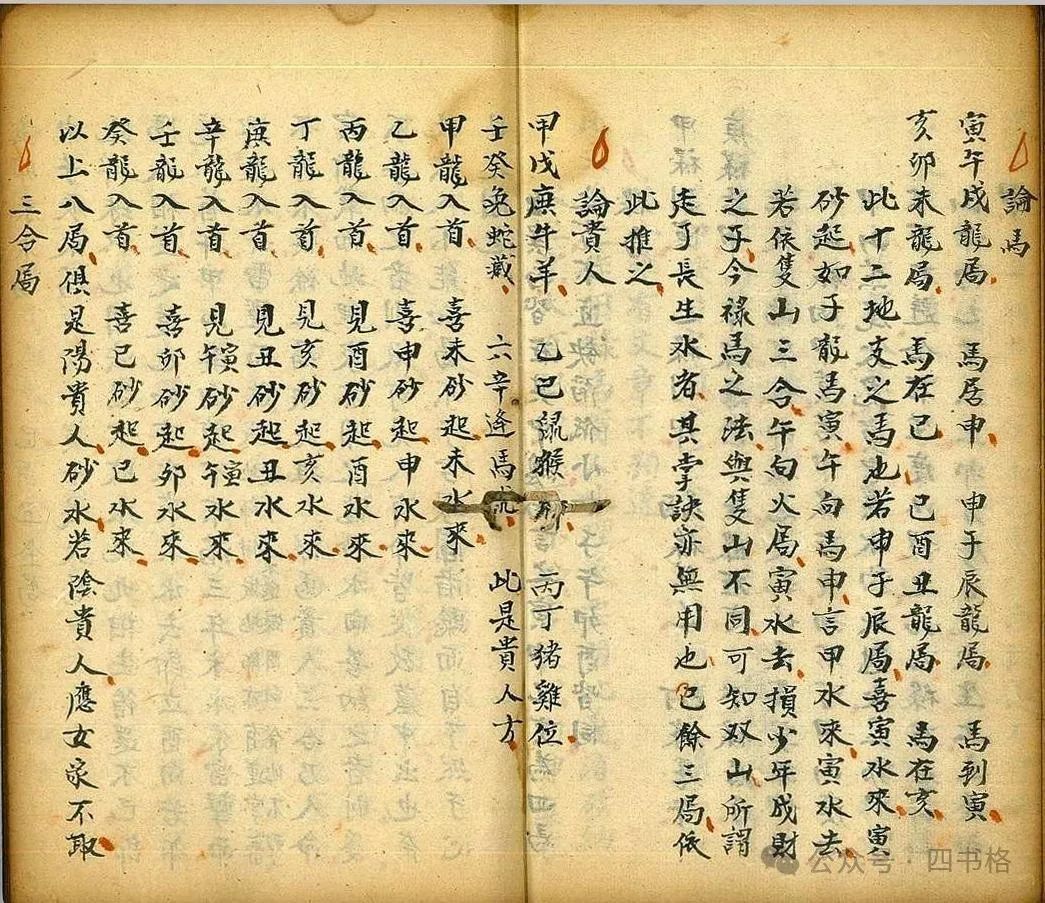 論馬
寅午戌龍局 馬居申 申子辰龍局 馬到寅
亥卯未龍局 馬在巳 巳酉丑龍局 馬在亥
此十二地支之馬也若申子辰局喜寅水來寅
砂起如子龍馬寅午向馬申言甲水來寅水去
若依隻山三合午向火局寅水去損少年成財
之子今祿馬之法與隻山不同可知双山所謂
走了長生水者其掌訣亦無用也已餘三局依
此推之
論貴人
甲戊庚牛羊 乙己鼠猴 丙丁猪雞位
壬癸兔蛇藏 六辛逢馬虎 此是貴人方
甲龍入首 喜未砂起未水來
乙龍入首 喜申砂起申水來
丙龍入首 見酉砂起酉水來
丁龍入首 見亥砂起亥水來
庚龍入首 見丑砂起丑水來
辛龍入首 見寅午砂起寅午水來
壬龍入首 喜卯砂起卯水來
癸龍入首 喜巳砂起巳水來
以上八局俱是陽貴人砂水若陰貴人應女家不取
三合局
公众号·四书格